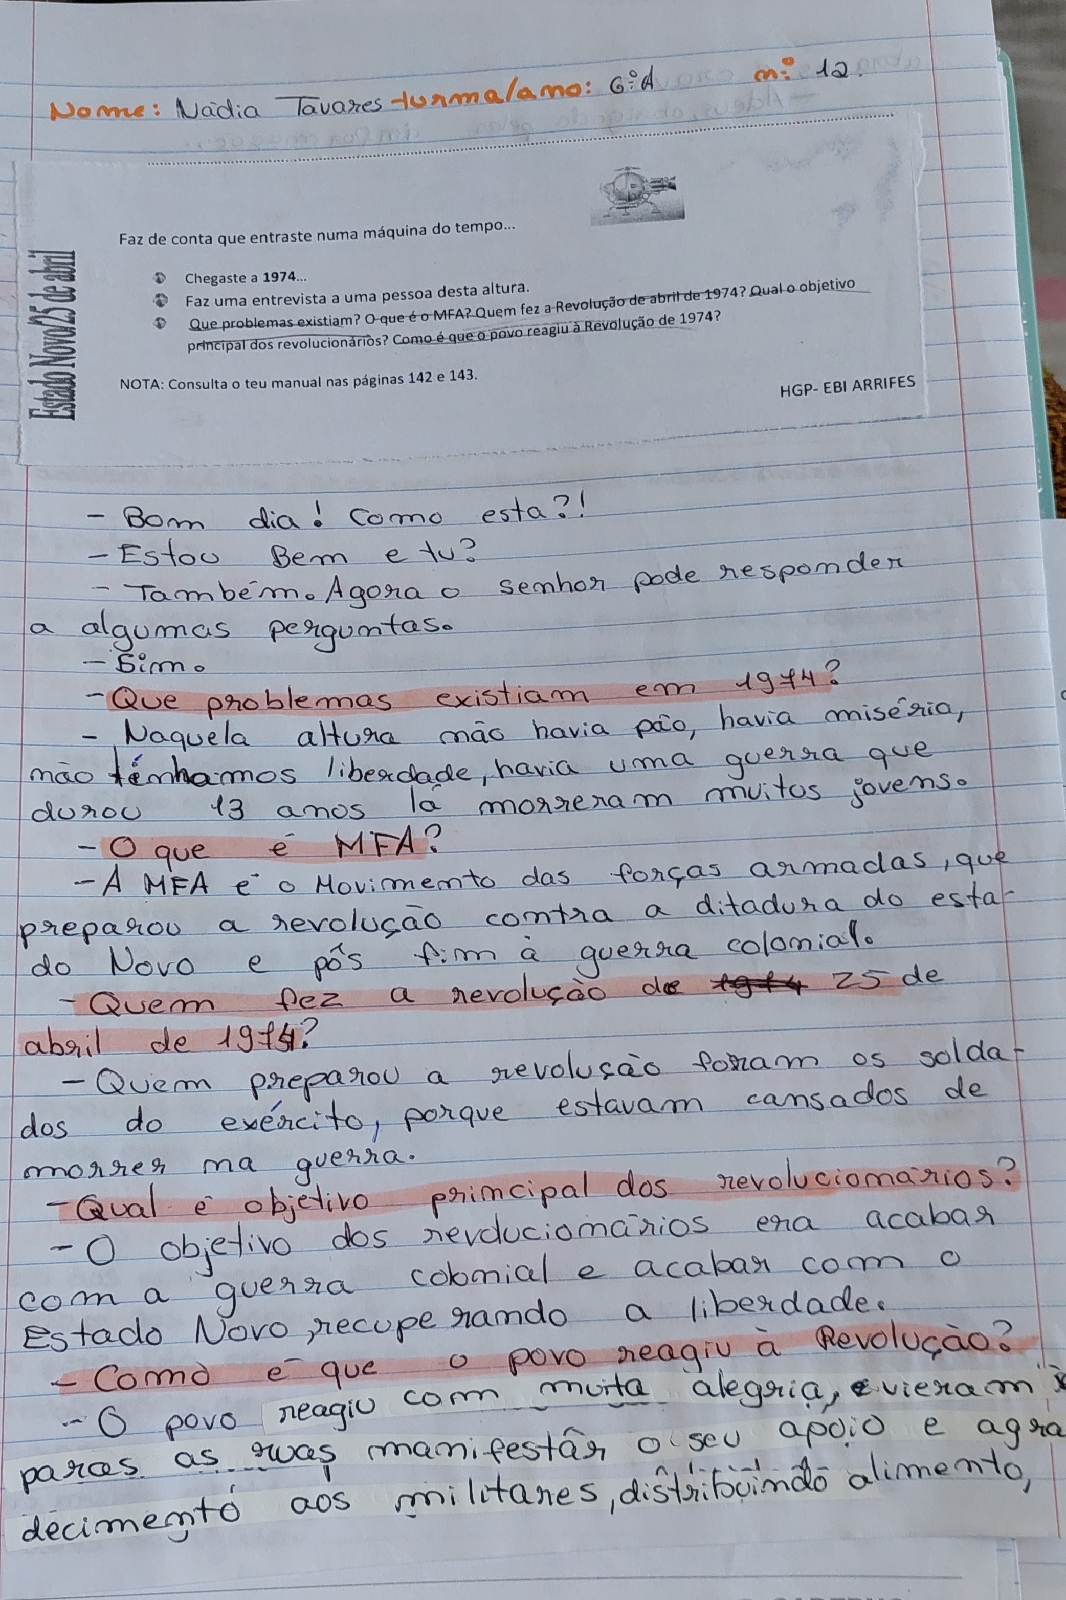 Nome: Nádia Tavares turma/ano: 6ºA nº 12.
Estado Novo/25 de abril
Faz de conta que entraste numa máquina do tempo...
Chegaste a 1974...
Faz uma entrevista a uma pessoa desta altura.
Que problemas existiam? O que é o MFA? Quem fez a Revolução de abril de 1974? Qual o objetivo
principal dos revolucionários? Como é que o povo reagiu à Revolução de 1974?
NOTA: Consulta o teu manual nas páginas 142 e 143.
HGP- EBI ARRIFES
- Bom dia! Como esta?!
- Estou Bem e tu?
- Também. Agora o senhor pode responder
a algumas perguntas.
- Sim.
- Que problemas existiam em 1974?
- Naquela altura não havia pão, havia miséria,
não tênhamos liberdade, havia uma guerra que
durou 13 anos lá morreram muitos jovens.
- O que é MFA?
- A MFA é o Movimento das forças armadas, que
preparou a revolução contra a ditadura do esta-
do Novo e pôs fim à guerra colonial.
- Quem fez a revolução de 1974 25 de
abril de 1974?
- Quem preparou a revolusão foram os solda-
dos do exército, porque estavam cansados de
morrer na guerra.
- Qual é objetivo principal dos revolucionários?
- O objetivo dos revolucionários era acabar
com a guerra colonial e acabar com o
Estado Novo, recuperando a liberdade.
- Como é que o povo reagiu à Revolução?
- O povo reagiu com muita alegria, e vieram
paras as ruas manifestar o seu apoio e agra
decimento aos militares, distribuindo alimento,